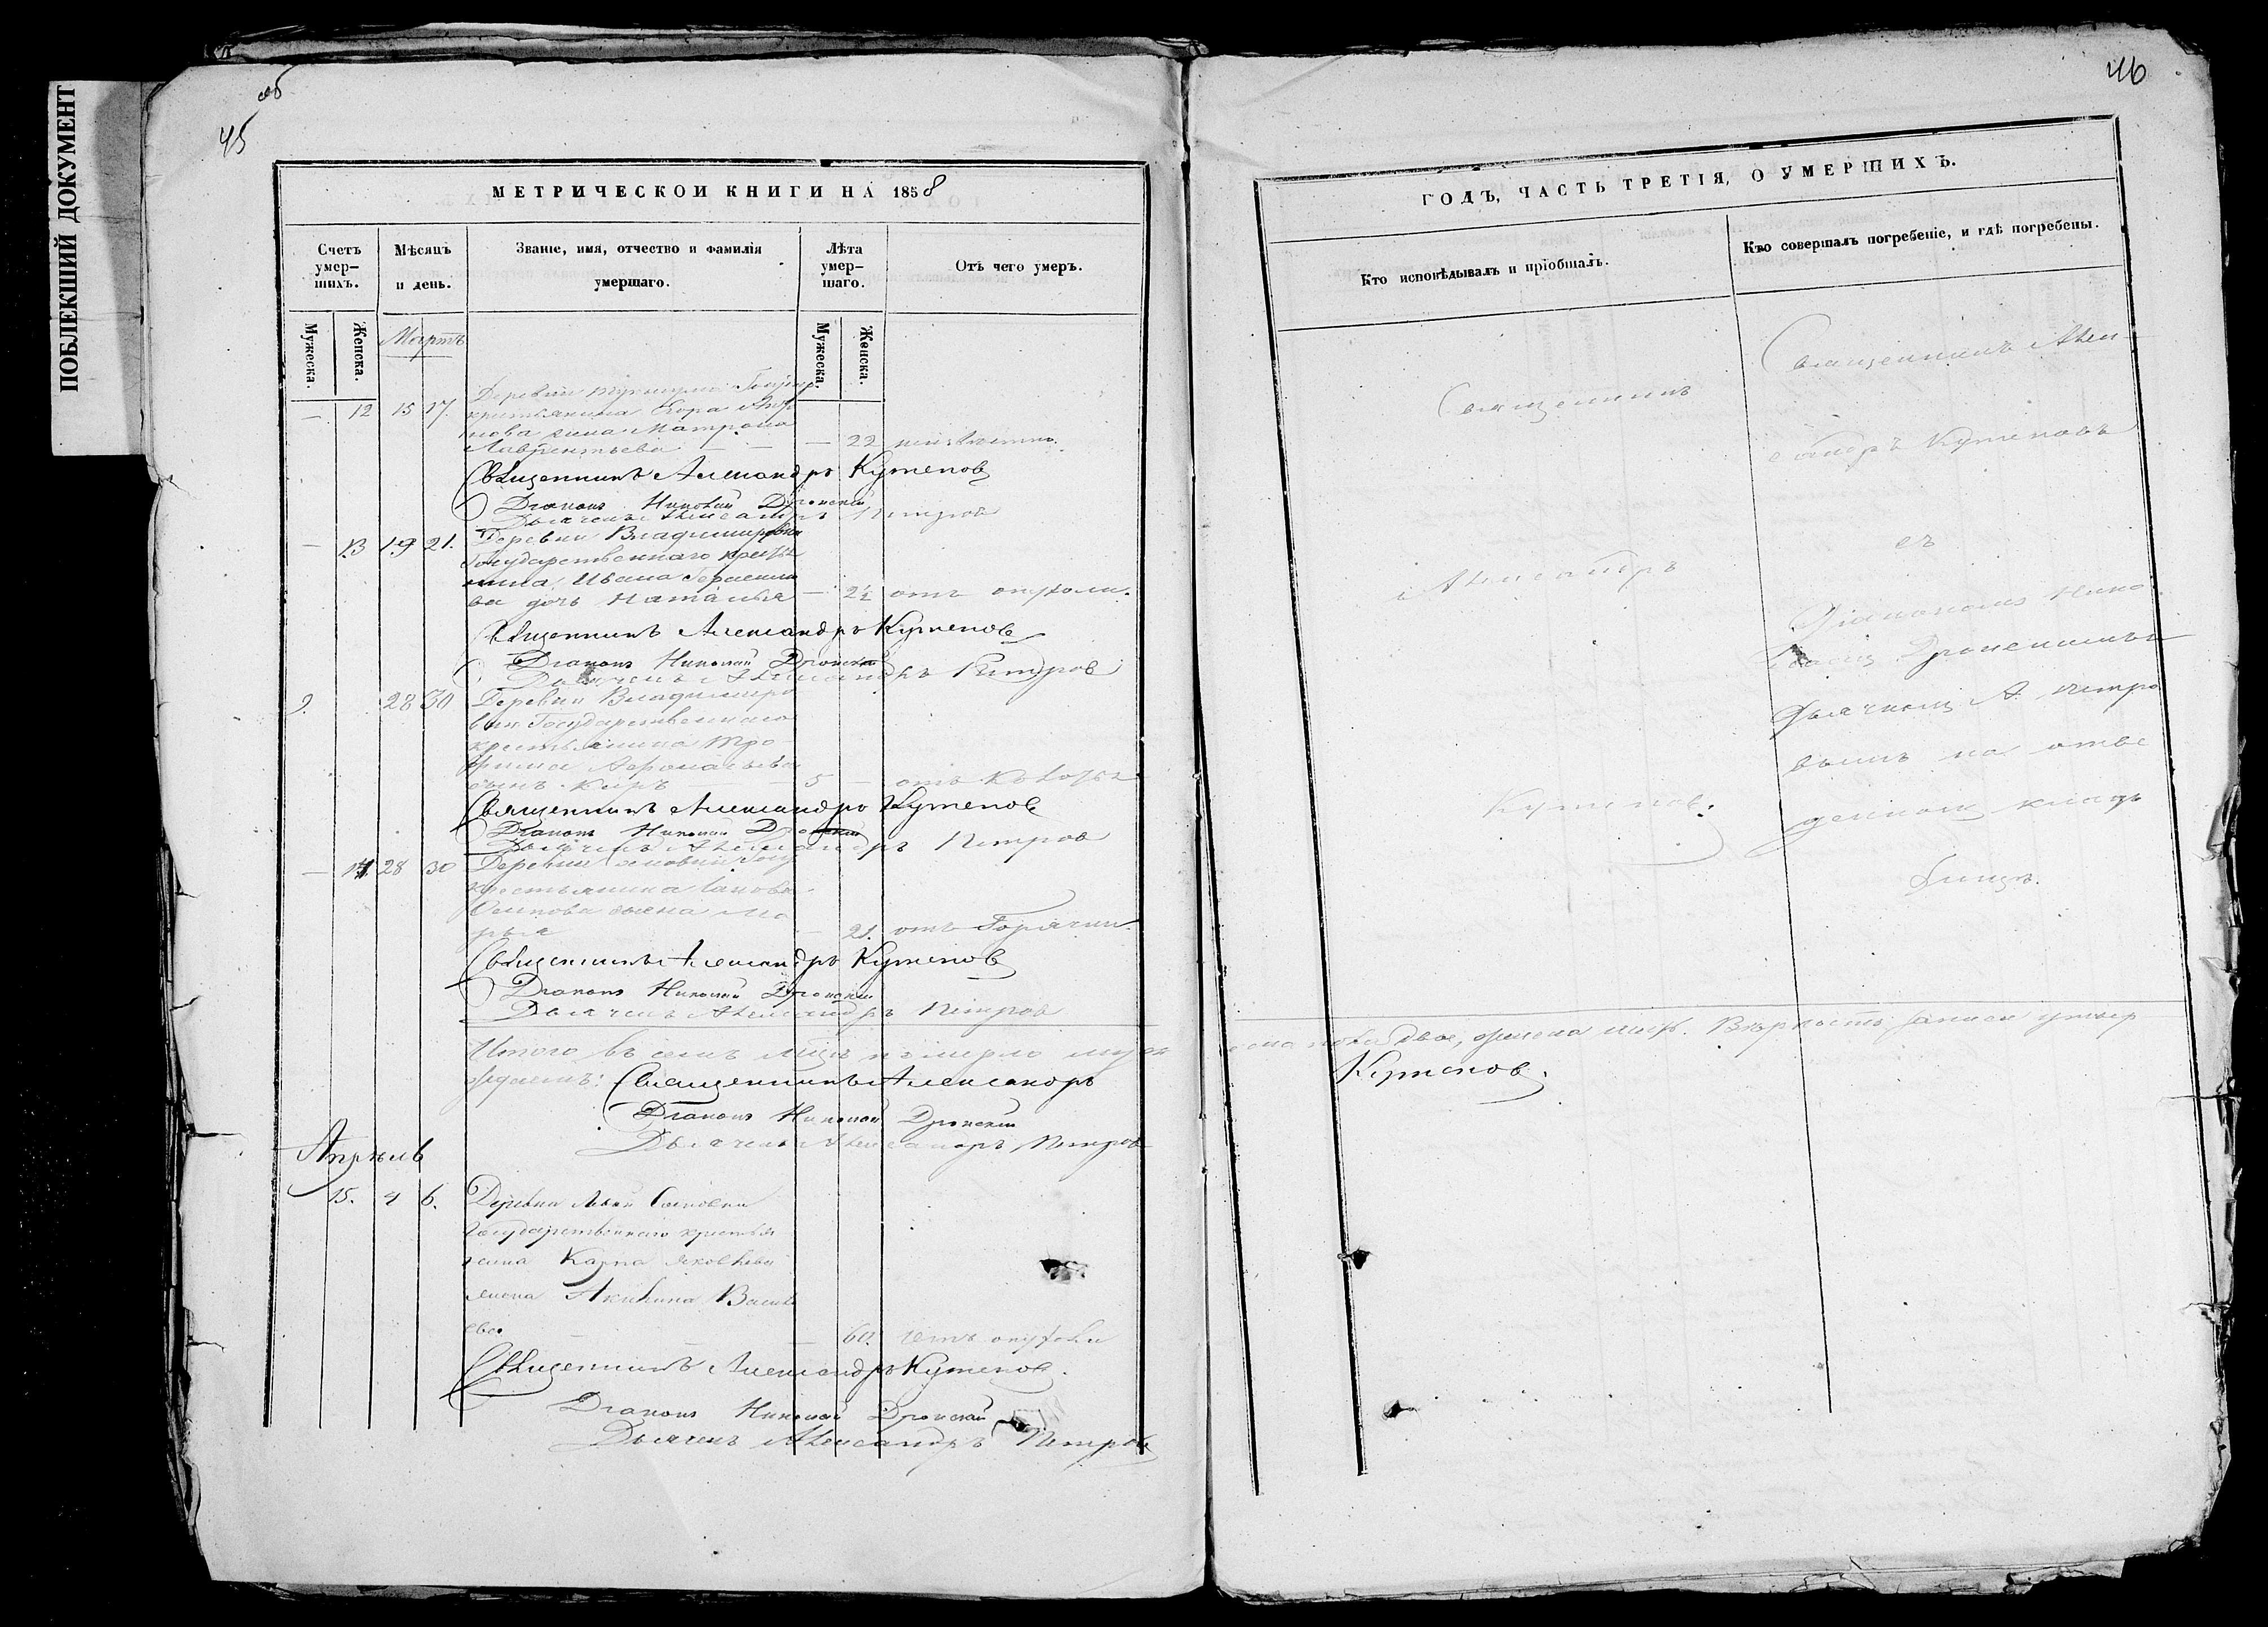 ПОБЛЕКШИЙ ДОКУМЕНТ
об
45
МЕТРИЧЕСКОЙ КНИГИ НА 1858
Счетъ умер-шихъ.
Мѣсяцъ и день.
Званіе, имя, отчество и фамилія умершаго.
Лѣта умер-шаго.
Отъ чего умеръ.
Мужеска.
Женска.
Мужеска.
Женска.
Мартъ
Деревни
— 12 15 17. крестьянина Егора
нова жена Матрона
Лаврентьева — — 22 неизвѣстно.
Священникъ Александръ Кутепов
Діаконъ Николай Дронскій
Дьячекъ Александръ Петров
— 13 19 21. Деревни Владимировки
Государственнаго крестья
нина Ивана Герасимо
ва дочь Наталья — 2½ отъ опухоли.
Священникъ Александръ Кутепов
Діаконъ Николай Дронскій
Дьячекъ Александръ Петров
9. 28 30 Деревни Владимиро
вки Государственнаго
крестьянина Тро
фима
сынъ Киръ 5 — отъ
Священникъ Александръ Кутепов
Діаконъ Николай Дронскій
Дьячекъ Александръ Петров
— 14 28 30 Деревни
крестьянина Іакова
Осипова жена Ма
рья — 21. отъ Горячки
Священникъ Александръ Кутепов
Діаконъ Николай Дронскій
Дьячекъ Александръ Петров
Итого въ семъ мцѣ померло муж
ждаемъ: Священникъ Александръ
Діаконъ Николай Дронскій
Дьячекъ Александръ Петров
Апрѣль
15. 4 6. Деревни
Государственнаго крестья
нина Карпа Яковлева
жена Акилина Василь
ева — — — 60. отъ опухоли
Священникъ Александръ Кутепов.
Діаконъ Николай Дронскій
Дьячекъ Александръ Петров
46
ГОДЪ, ЧАСТЬ ТРЕТІЯ, О УМЕРШИХЪ.
Кто исповѣдывалъ и пріобщалъ.
Кто совершалъ погребеніе, и гдѣ погребены.
Священникъ
Александръ
Кутепов.
Священникъ Алек-
сандръ Кутеповъ
съ
Діакономъ Нико
лаемъ Дронскимъ
Дьячкомъ А. Петро
вымъ на отве
денномъ клад
бищѣ.
двое, женска Вѣрность записи утвер
Кутепов.